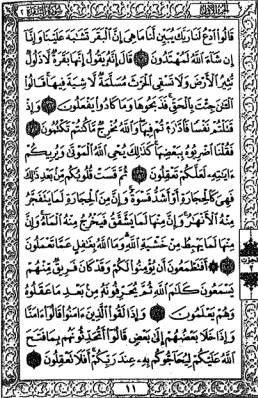 قَالُوا۟ ٱدْعُ لَنَا رَبَّكَ يُبَيِّن لَّنَا مَا هِىَ إِنَّ ٱلْبَقَرَ تَشَـٰبَهَ عَلَيْنَا وَإِنَّآ
إِن شَآءَ ٱللَّهُ لَمُهْتَدُونَ ٧٠ قَالَ إِنَّهُۥ يَقُولُ إِنَّهَا بَقَرَةٌ لَّا ذَلُولٌ
تُثِيرُ ٱلْأَرْضَ وَلَا تَسْقِى ٱلْحَرْثَ مُسَلَّمَةٌ لَّا شِيَةَ فِيهَا قَالُوا۟
ٱلْـَٔـٰنَ جِئْتَ بِٱلْحَقِّ فَذَبَحُوهَا وَمَا كَادُوا۟ يَفْعَلُونَ ٧١ وَإِذْ
قَتَلْتُمْ نَفْسًا فَٱدَّٰرَْٰٔتُمْ فِيهَا وَٱللَّهُ مُخْرِجٌ مَّا كُنتُمْ تَكْتُمُونَ ٧٢
فَقُلْنَا ٱضْرِبُوهُ بِبَعْضِهَا كَذَٰلِكَ يُحْىِ ٱللَّهُ ٱلْمَوْتَىٰ وَيُرِيكُمْ
ءَايَـٰتِهِۦ لَعَلَّكُمْ تَعْقِلُونَ ٧٣ ثُمَّ قَسَتْ قُلُوبُكُم مِّنۢ بَعْدِ ذَٰلِكَ
فَهِىَ كَٱلْحِجَارَةِ أَوْ أَشَدُّ قَسْوَةً وَإِنَّ مِنَ ٱلْحِجَارَةِ لَمَا يَتَفَجَّرُ
مِنْهُ ٱلْأَنْهَـٰرُ وَإِنَّ مِنْهَا لَمَا يَشَّقَّقُ فَيَخْرُجُ مِنْهُ ٱلْمَآءُ وَإِنَّ
مِنْهَا لَمَا يَهْبِطُ مِنْ خَشْيَةِ ٱللَّهِ وَمَا ٱللَّهُ بِغَـٰفِلٍ عَمَّا تَعْمَلُونَ
٧٤ أَفَتَطْمَعُونَ أَن يُؤْمِنُوا۟ لَكُمْ وَقَدْ كَانَ فَرِيقٌ مِّنْهُمْ
يَسْمَعُونَ كَلَـٰمَ ٱللَّهِ ثُمَّ يُحَرِّفُونَهُۥ مِنۢ بَعْدِ مَا عَقَلُوهُ
وَهُمْ يَعْلَمُونَ ٧٥ وَإِذَا لَقُوا۟ ٱلَّذِينَ ءَامَنُوا۟ قَالُوٓا۟ ءَامَنَّا
وَإِذَا خَلَا بَعْضُهُمْ إِلَىٰ بَعْضٍ قَالُوٓا۟ أَتُحَدِّثُونَهُم بِمَا فَتَحَ
ٱللَّهُ عَلَيْكُمْ لِيُحَآجُّوكُم بِهِۦ عِندَ رَبِّكُمْ أَفَلَا تَعْقِلُونَ ٧٦
١١